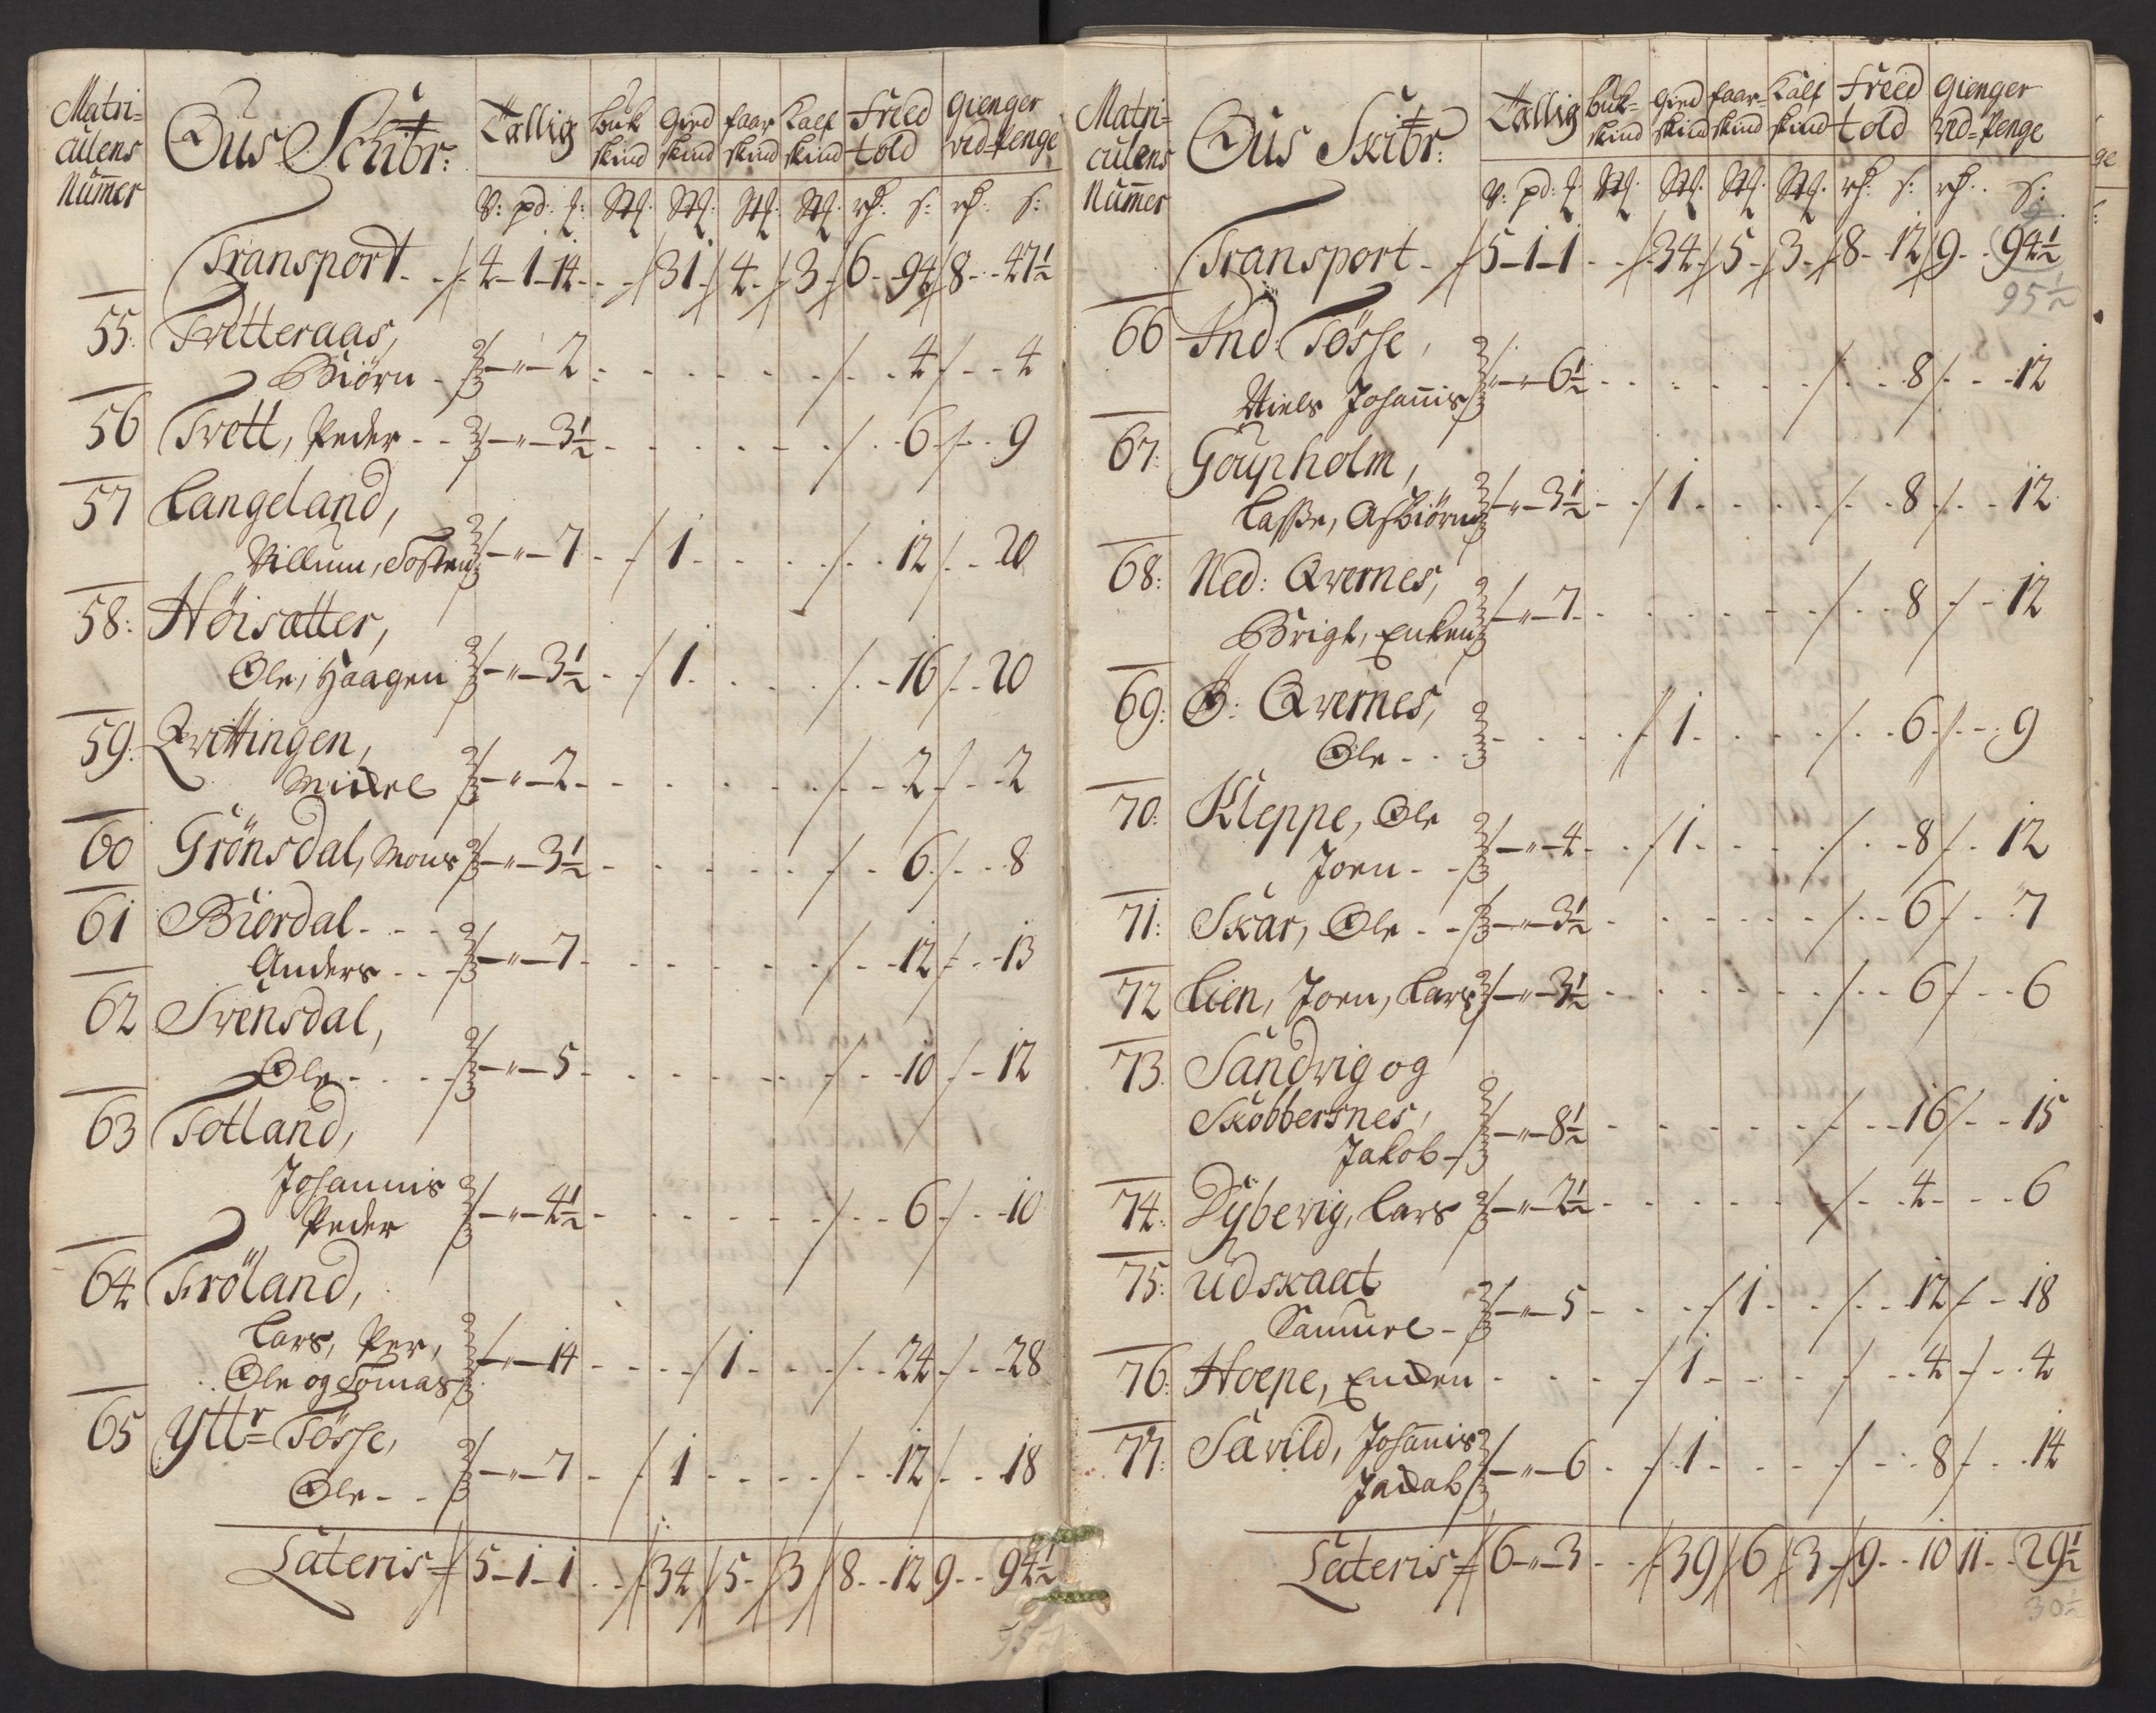 Matri-
culens
Nummer
Ous Schibr:
Tallig
buk skind
Gied skind
faar skind
Kalf skind
Freed told
Gienger vid-Penge
V: pd: Stk: Stk: Stk: Stk: s: s:
Transport - 4 - 1 - 14 - - 31 4 - 3 6 - 94 8 - 47½
55: Tvetteraas,
Biörn - - " - 2 - 4 - 4
56 Tvett, Peder - - - " - 3½ - 6 - 9
57 Langeland,
Villum, Tosten - " - 7 - 1 - 12 - 20
58: Höisætter,
Ole, Haagen - " - 3½ - 1 - 16 - 20
59: Qvittingen,
Mickel - " - 2 - 2 - 2
60 Grönsdal, Mons - " - 3½ - 6 - 8
61 Biordal - - -
Anders - - - " - 7 - 12 - 13
62 Svensdal,
Ole - - - " - 5 - 10 - 12
63 Totland,
Johannis
Peder - " - 4½ - 6 - 10
64 Fröland,
Lars, Per,
Ole og Tomas - " - 14 - 1 - 24 - 28
65 Yttr= Tösse,
Ole - - - " - 7 - 1 - 12 - 18
Lateris = 5 - 1 - 1 - - 34 5 - 3 8 - 12 9 - 94½
95½
Matri-
culens
Nummer
Ous Skibr:
Tallig
buk- skind
Gied skind
faar- skind
Kalf skind
Freed told
Gienger vid-Penge
V: pd: Stk: Stk: Stk: Stk: s: s:
Transport - 5 - 1 - 1 - - 34 - 5 - 3 - 8 - 12 9 - 94½
95½
66 Ind: Tösse,
Niels Johannis - " - 6½ - 8 - 12
67: Gouphölm,
Lasse, Asbiörn - " - 3½ - 1 - 8 - 12
68: Ned: Qvernes,
Brigt, Enken - " - 7 - 8 - 12
69: Ö: Qvernes,
Ole - - - 1 - 6 - 9
70: Kleppe, Ole
Joen - - - " - 4 - 1 - 8 - 12
71: Skar, Ole - - - " - 3½ - 6 - 7
72 Lien, Joen, Lars - " - 3½ - 6 - 6
73. Sandvig og
Skobbersnes,
Jakob - - " - 8½ - 16 - 15
74: Dyberig, Lars - " - 2½ - 4 - 6
75: Udskaat
Samuel - - " - 5 - 1 - 12 - 18
76: Hoepe, Enken - 1 - 4 - 4
77: Sævild, Johannis
Jackab - " - 6 - 1 - 8 - 14
Lateris = 6 - " - 3 - - 39 6 3 - 9 - 10 11 - 29½
30½